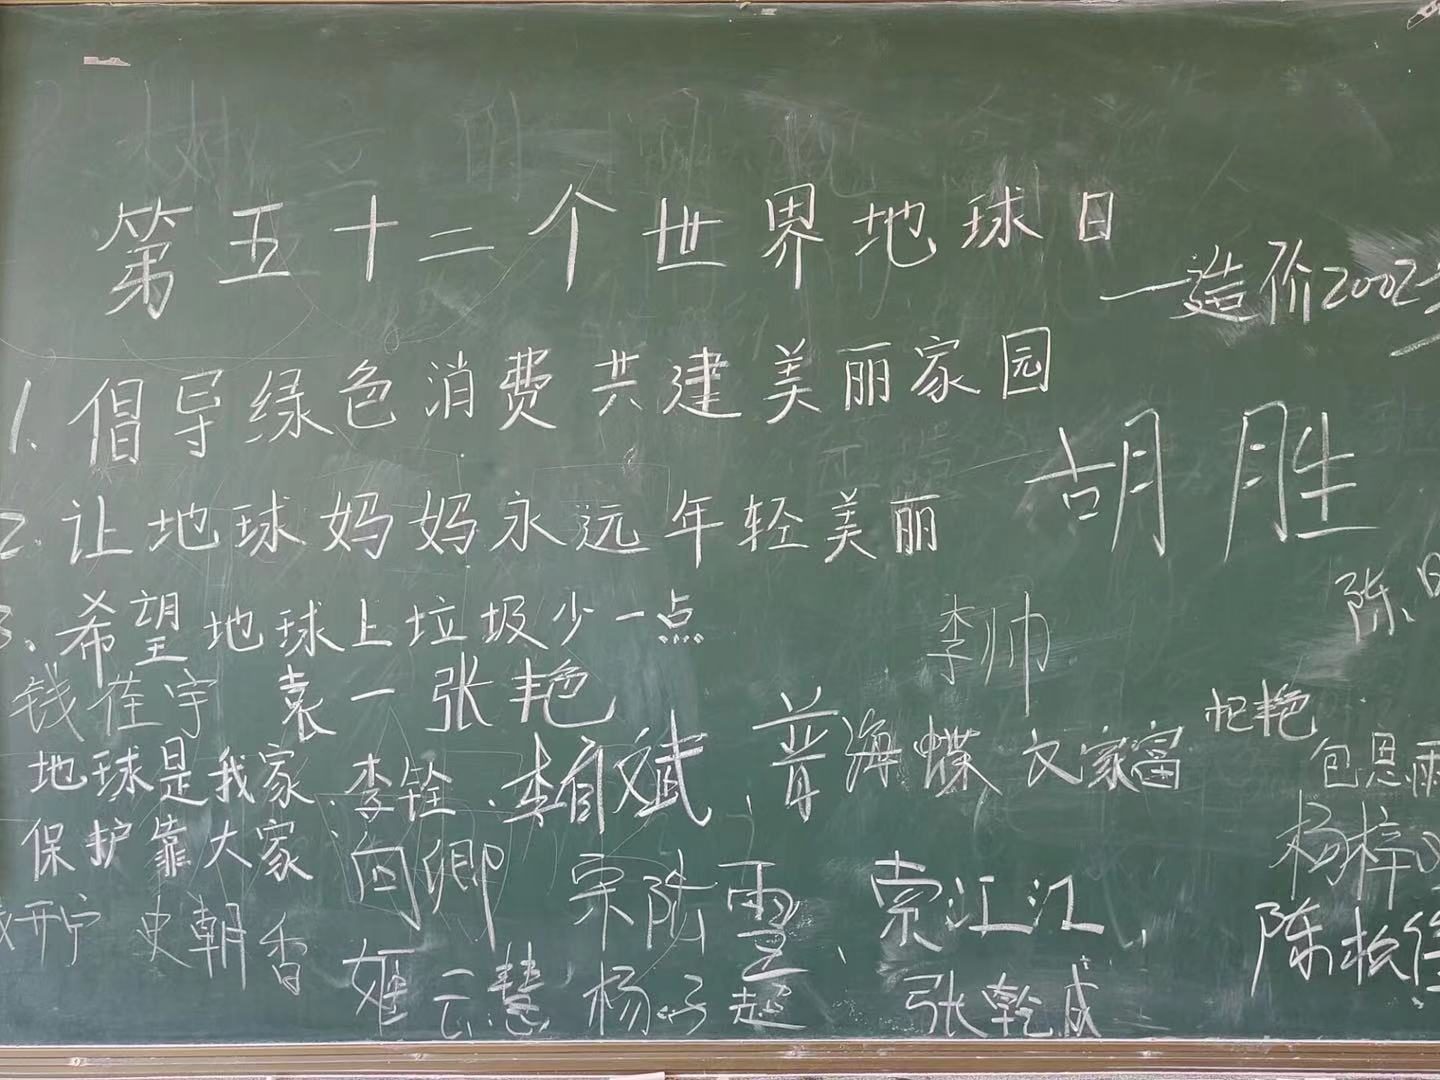 第五十二个世界地球日
—造价2002
1. 倡导绿色消费共建美丽家园
胡胜
2. 让地球妈妈永远年轻美丽
3. 希望地球上垃圾少一点
李帅
陈
钱荏宇 袁一 张艳
普海蝶
地球是我家 李铨
包恩雨
保护靠大家
杨梓
开宁 史朝香
宗陈雪
索江江
陈
姬云慧 杨子超 张乾成